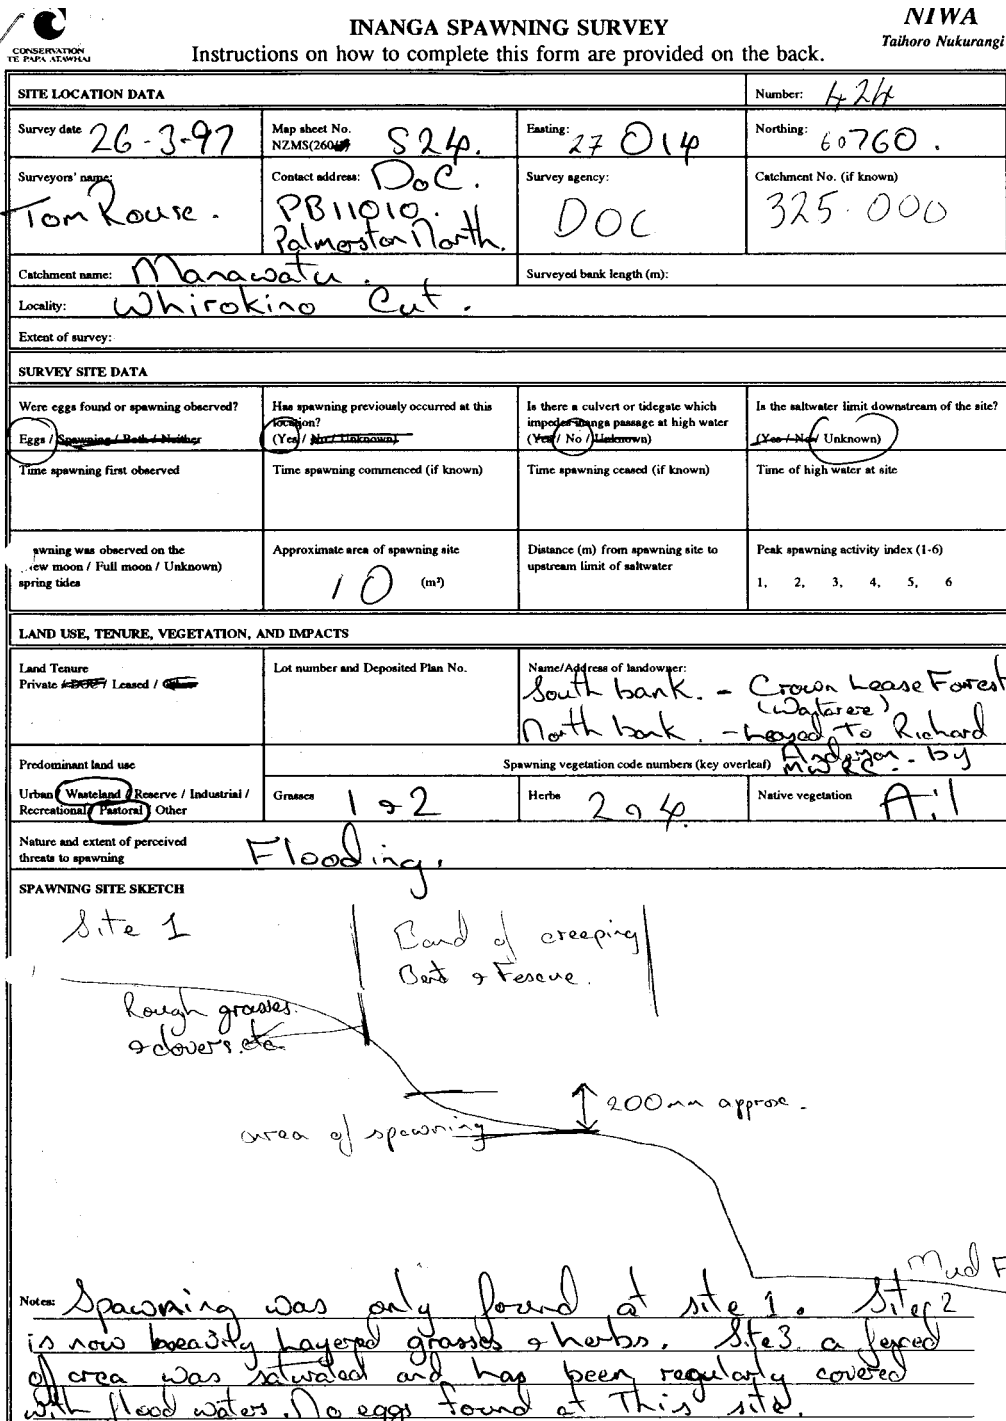 CONSERVATION
TE PAPA ATAWHAI
INANGA SPAWNING SURVEY
Instructions on how to complete this form are provided on the back.
NIWA
Taihoro Nukurangi
SITE LOCATION DATA
Number: 424
Survey date 26-3-97
Map sheet No.
NZMS(260) S24.
Easting: 27 014
Northing: 60760.
Surveyors' name:
Tom Rouse.
Contact address: DoC.
PB11010.
Palmerston North.
Survey agency:
DOC
Catchment No. (if known)
325.000
Catchment name: Manawatu.
Surveyed bank length (m):
Locality: Whirokino Cut.
Extent of survey:
SURVEY SITE DATA
Were eggs found or spawning observed?
Eggs / Spawning / Both / Neither
Has spawning previously occurred at this
location?
(Yes / No / Unknown)
Is there a culvert or tidegate which
impedes inanga passage at high water
(Yes / No / Unknown)
Is the saltwater limit downstream of the site?
(Yes / No / Unknown)
Time spawning first observed
Time spawning commenced (if known)
Time spawning ceased (if known)
Time of high water at site
awning was observed on the
ew moon / Full moon / Unknown)
spring tides
Approximate area of spawning site
10 (m²)
Distance (m) from spawning site to
upstream limit of saltwater
Peak spawning activity index (1-6)
1, 2, 3, 4, 5, 6
LAND USE, TENURE, VEGETATION, AND IMPACTS
Land Tenure
Private / DOC / Leased /
Lot number and Deposited Plan No.
Name/Address of landowner:
South bank. - Crown Lease Forest
(Waitarere)
North bank. - Leased To Richard
Anderson. by
MWRC.
Predominant land use
Urban / Wasteland / Reserve / Industrial /
Recreational / Pastoral / Other
Spawning vegetation code numbers (key overleaf)
Grasses 1 & 2
Herbs 2 & 4.
Native vegetation A:1
Nature and extent of perceived
threats to spawning
Flooding.
SPAWNING SITE SKETCH
Site 1
Band of creeping
Bent & Fescue.
Rough grasses.
& clovers.etc
200mm approx.
area of spawning
Mud F
Notes: Spawning was only found at site 1. Site 2
is now heavily layered grasses & herbs. Site3 a fenced
of area was saturated and has been regularly covered
with flood waters. No eggs found at This site.